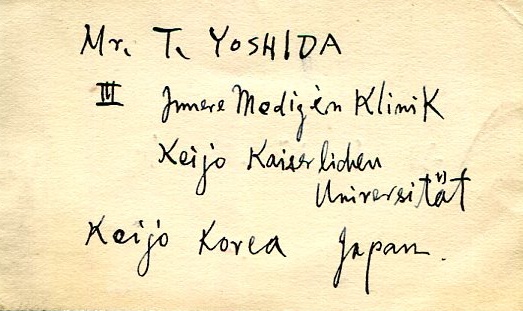 Mr. T. YOSHIDA
III Innere Medizin Klinik
Keijo Kaiserlichen
Universität
Keijo Korea Japan.